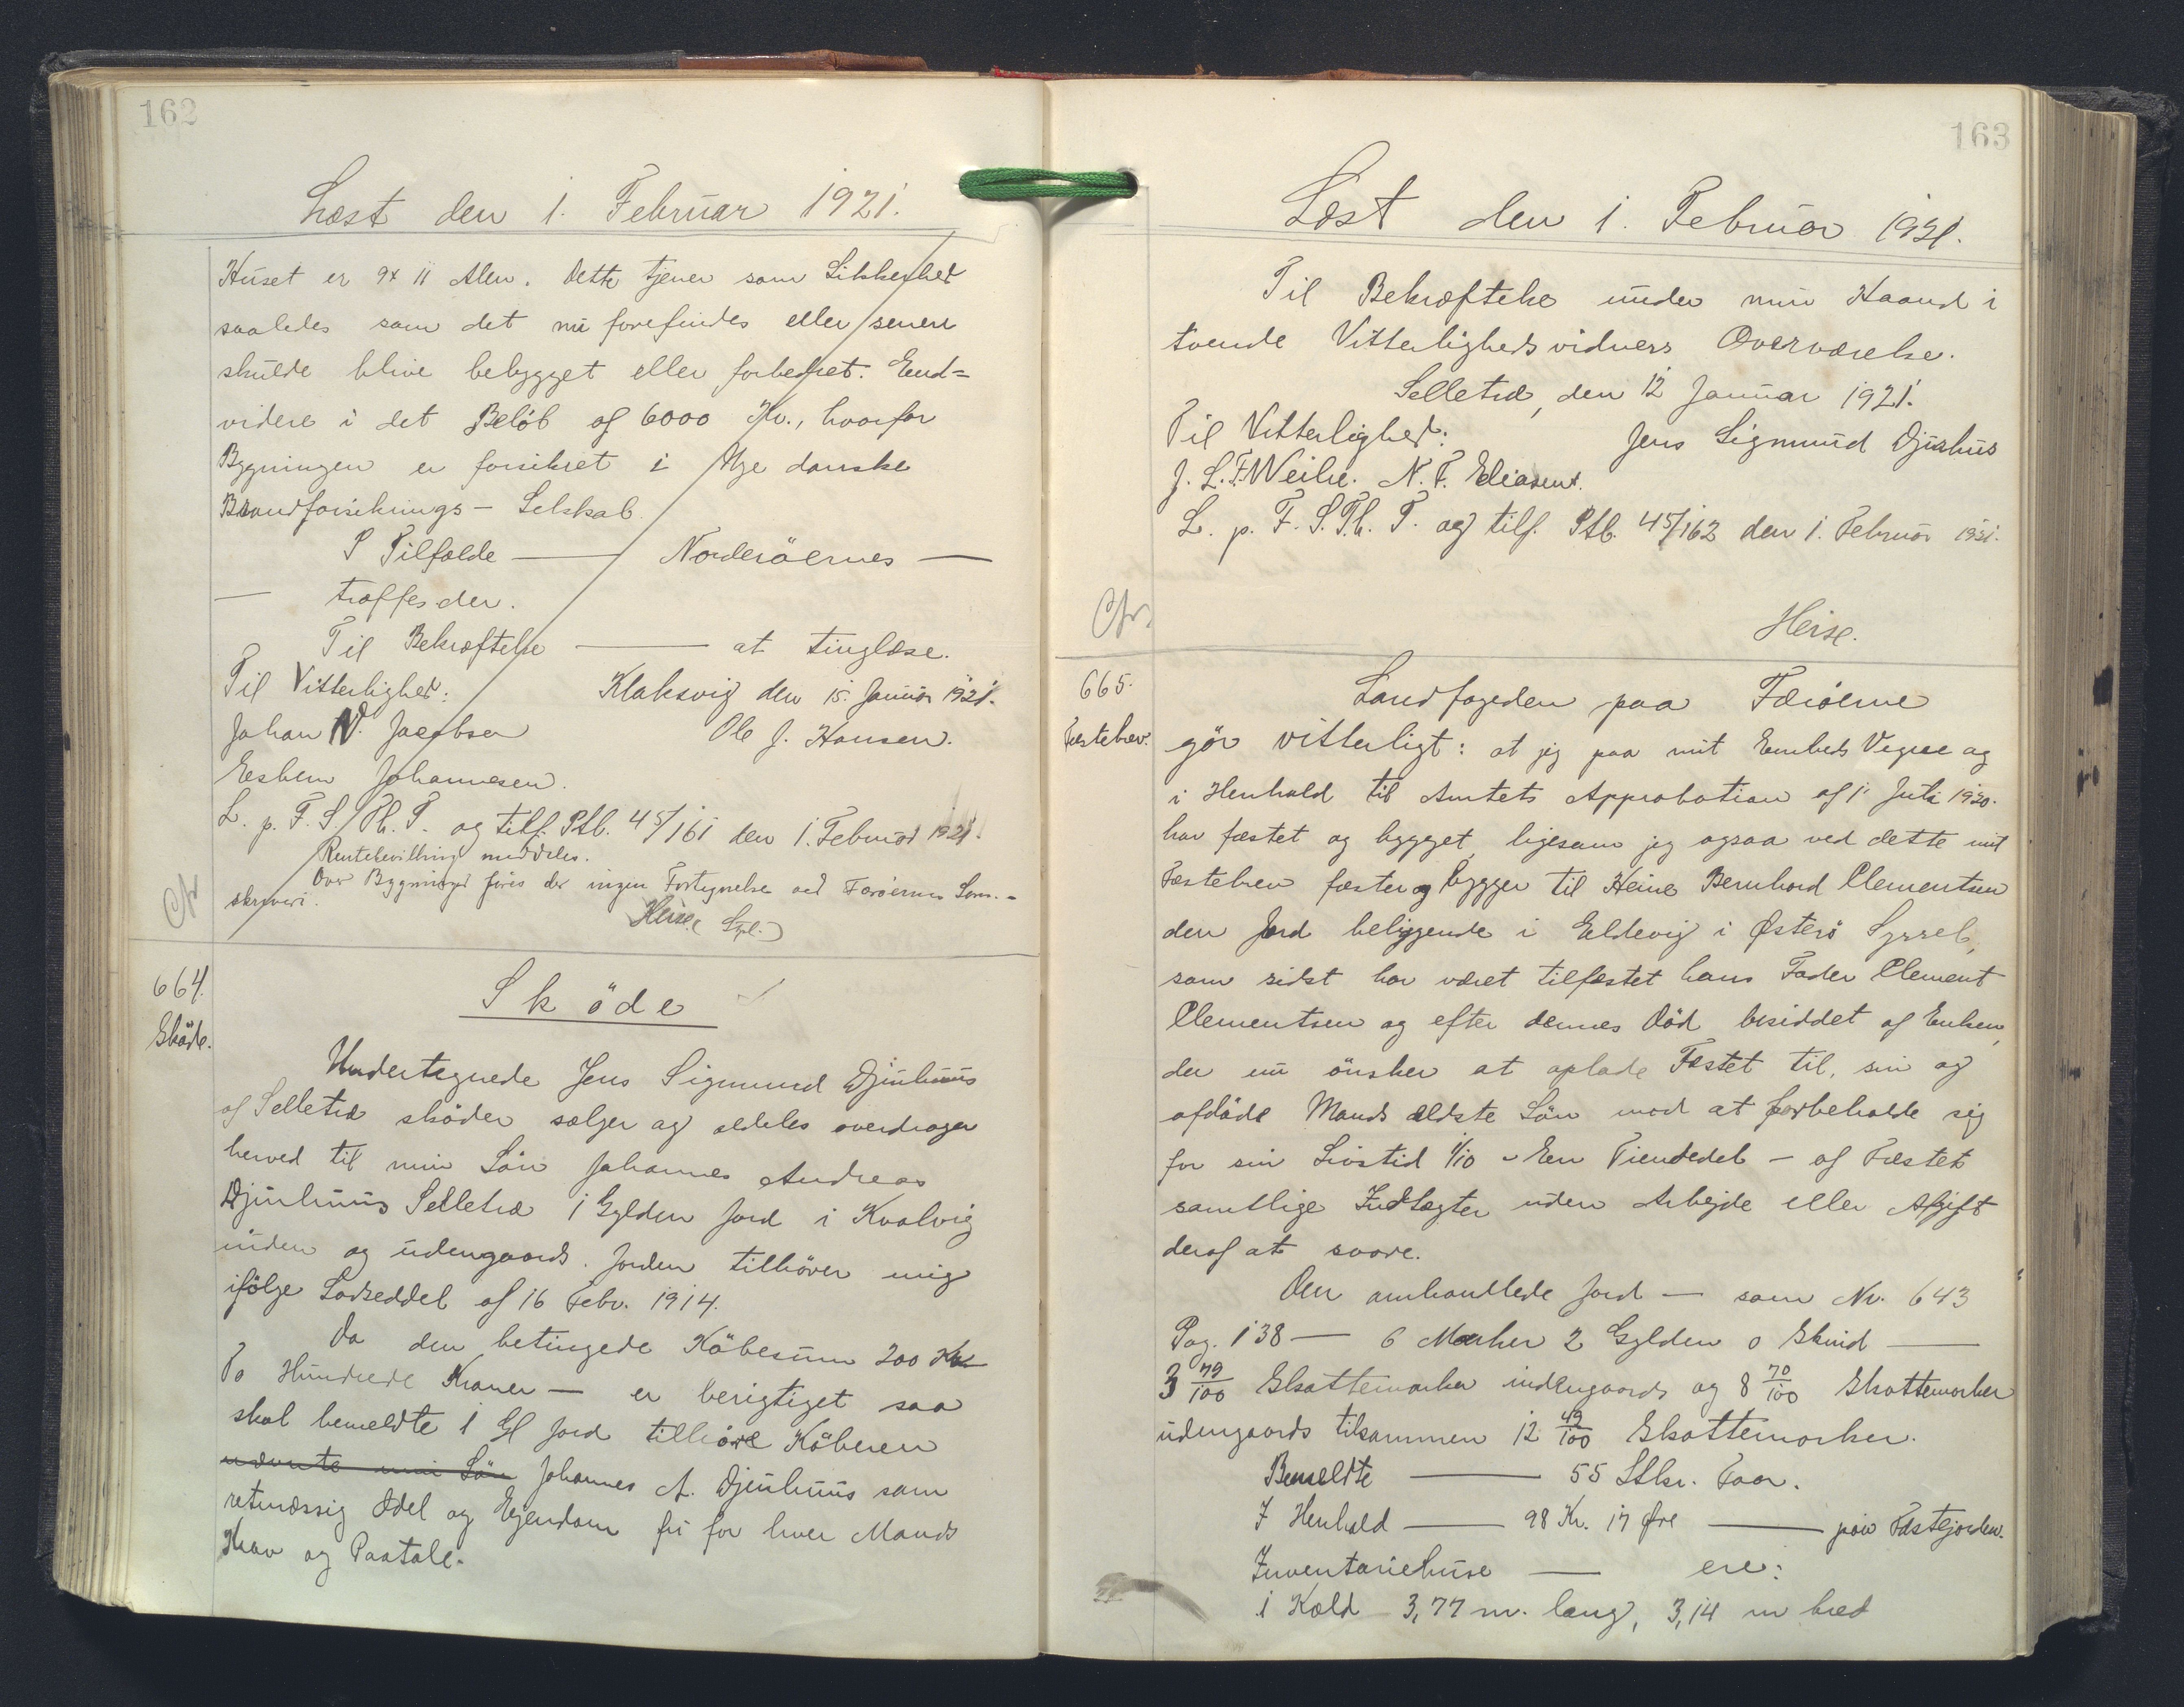 162
Læst den 1. Februar 1921.
Huset er 9 x 11 Alen. Dette tjener som Sikkerhed
saaledes som det nu forefindes eller senere
skulde blive bebygget eller forbedret. End=
videre i det Beløb af 6000 Kr., hvorfor
Bygningen er forsikret i Nye danske
Brandforsikrings - Selskab.
I Tilfælde — Norderöernes —
— træffes der.
Til Bekræftelse — at tinglæse.
Til Vitterlighed: Klaksvig den 15. Januar 1921.
Johan N. Jacobsen Ole J. Hansen.
Esbern Johannesen.
L. p. F. S. Th. T. og tilf. Ptb. 45/161 den 1. Februar 1921.
Rentebevilling meddeles.
Over Bygninger føres der ingen Fortegnelse ved Færøernes Soren-
skriveri.
Heise.
Cfr
664.
Sköde.
Sköde
Undertegnede Jens Sigmund Djurhuus
af Selletræ sköder sælger og aldeles overdrager
herved til min Sön Johannes Andreas
Djurhuus Selletræ 1 Gylden Jord i Kvalvig
inden og udengaards. Jorden tilhörer mig
ifölge Lodseddel af 16 Febr. 1914.
Da den betingede Köbesum 200 Kr
To Hundrede Kroner — er berigtiget saa
skal bemeldte 1 Gl Jord tilhöre Köberen
nævnte min Sön Johannes A. Djurhuus som
retmæssig Odel og Ejendom fri for hver Mands
Krav og Paatale.
163
Læst den 1. Februar 1921.
Til Bekræftelse under min Haand i
tvende Vitterlighedsvidners Overværelse.
Selletræ, den 12 Januar 1921.
Til Vitterlighed: Jens Sigmund Djurhus
J. L. F. Weihe. N. F. Eliasen.
L. p. F. S. Th. T. og tilf. Ptb. 45/162 den 1. Februar 1921.
Heise.
Cfr.
665.
Fæstebrev.
Landfogeden paa Færöerne
gör vitterligt: at jeg paa mit Embeds Vegne og
i Henhold til Amtets Approbation af 1' Juli 1920.
har fæstet og bygget, ligesom jeg ogsaa ved dette mit
Fæstebrev fæster og bygger til Heine Bernhard Clementsen
den Jord beliggende i Eldevig i Østerö Syssel,
som sidst har været tilfæstet hans Fader Clement
Clementsen og efter dennes Död besiddet af Enken,
der nu önsker at oplade Fæstet til sin og
afdöde Mands ældste Sön mod at forbeholde sig
for sin Livstid 1/10 - Een Tiendedel - af Fæstet
samtlige Indtægter uden Arbejde eller Afgift
deraf at svare.
Den omhandlede Jord — som Nr. 643
Pag. 138 — 6 Marker 2 Gylden 0 Skind —
3 79/100 Skattemarker indengaards og 8 70/100 Skattemarker
udengaards tilsammen 12 49/100 Skattemarker.
Bemeldte — 55 Stkr. Faar.
I Henhold — 98 Kr. 17 Øre — paa Fæstejorden.
Inventariehuse — ere:
1 Kold 3,77 m. lang, 3,14 m bred